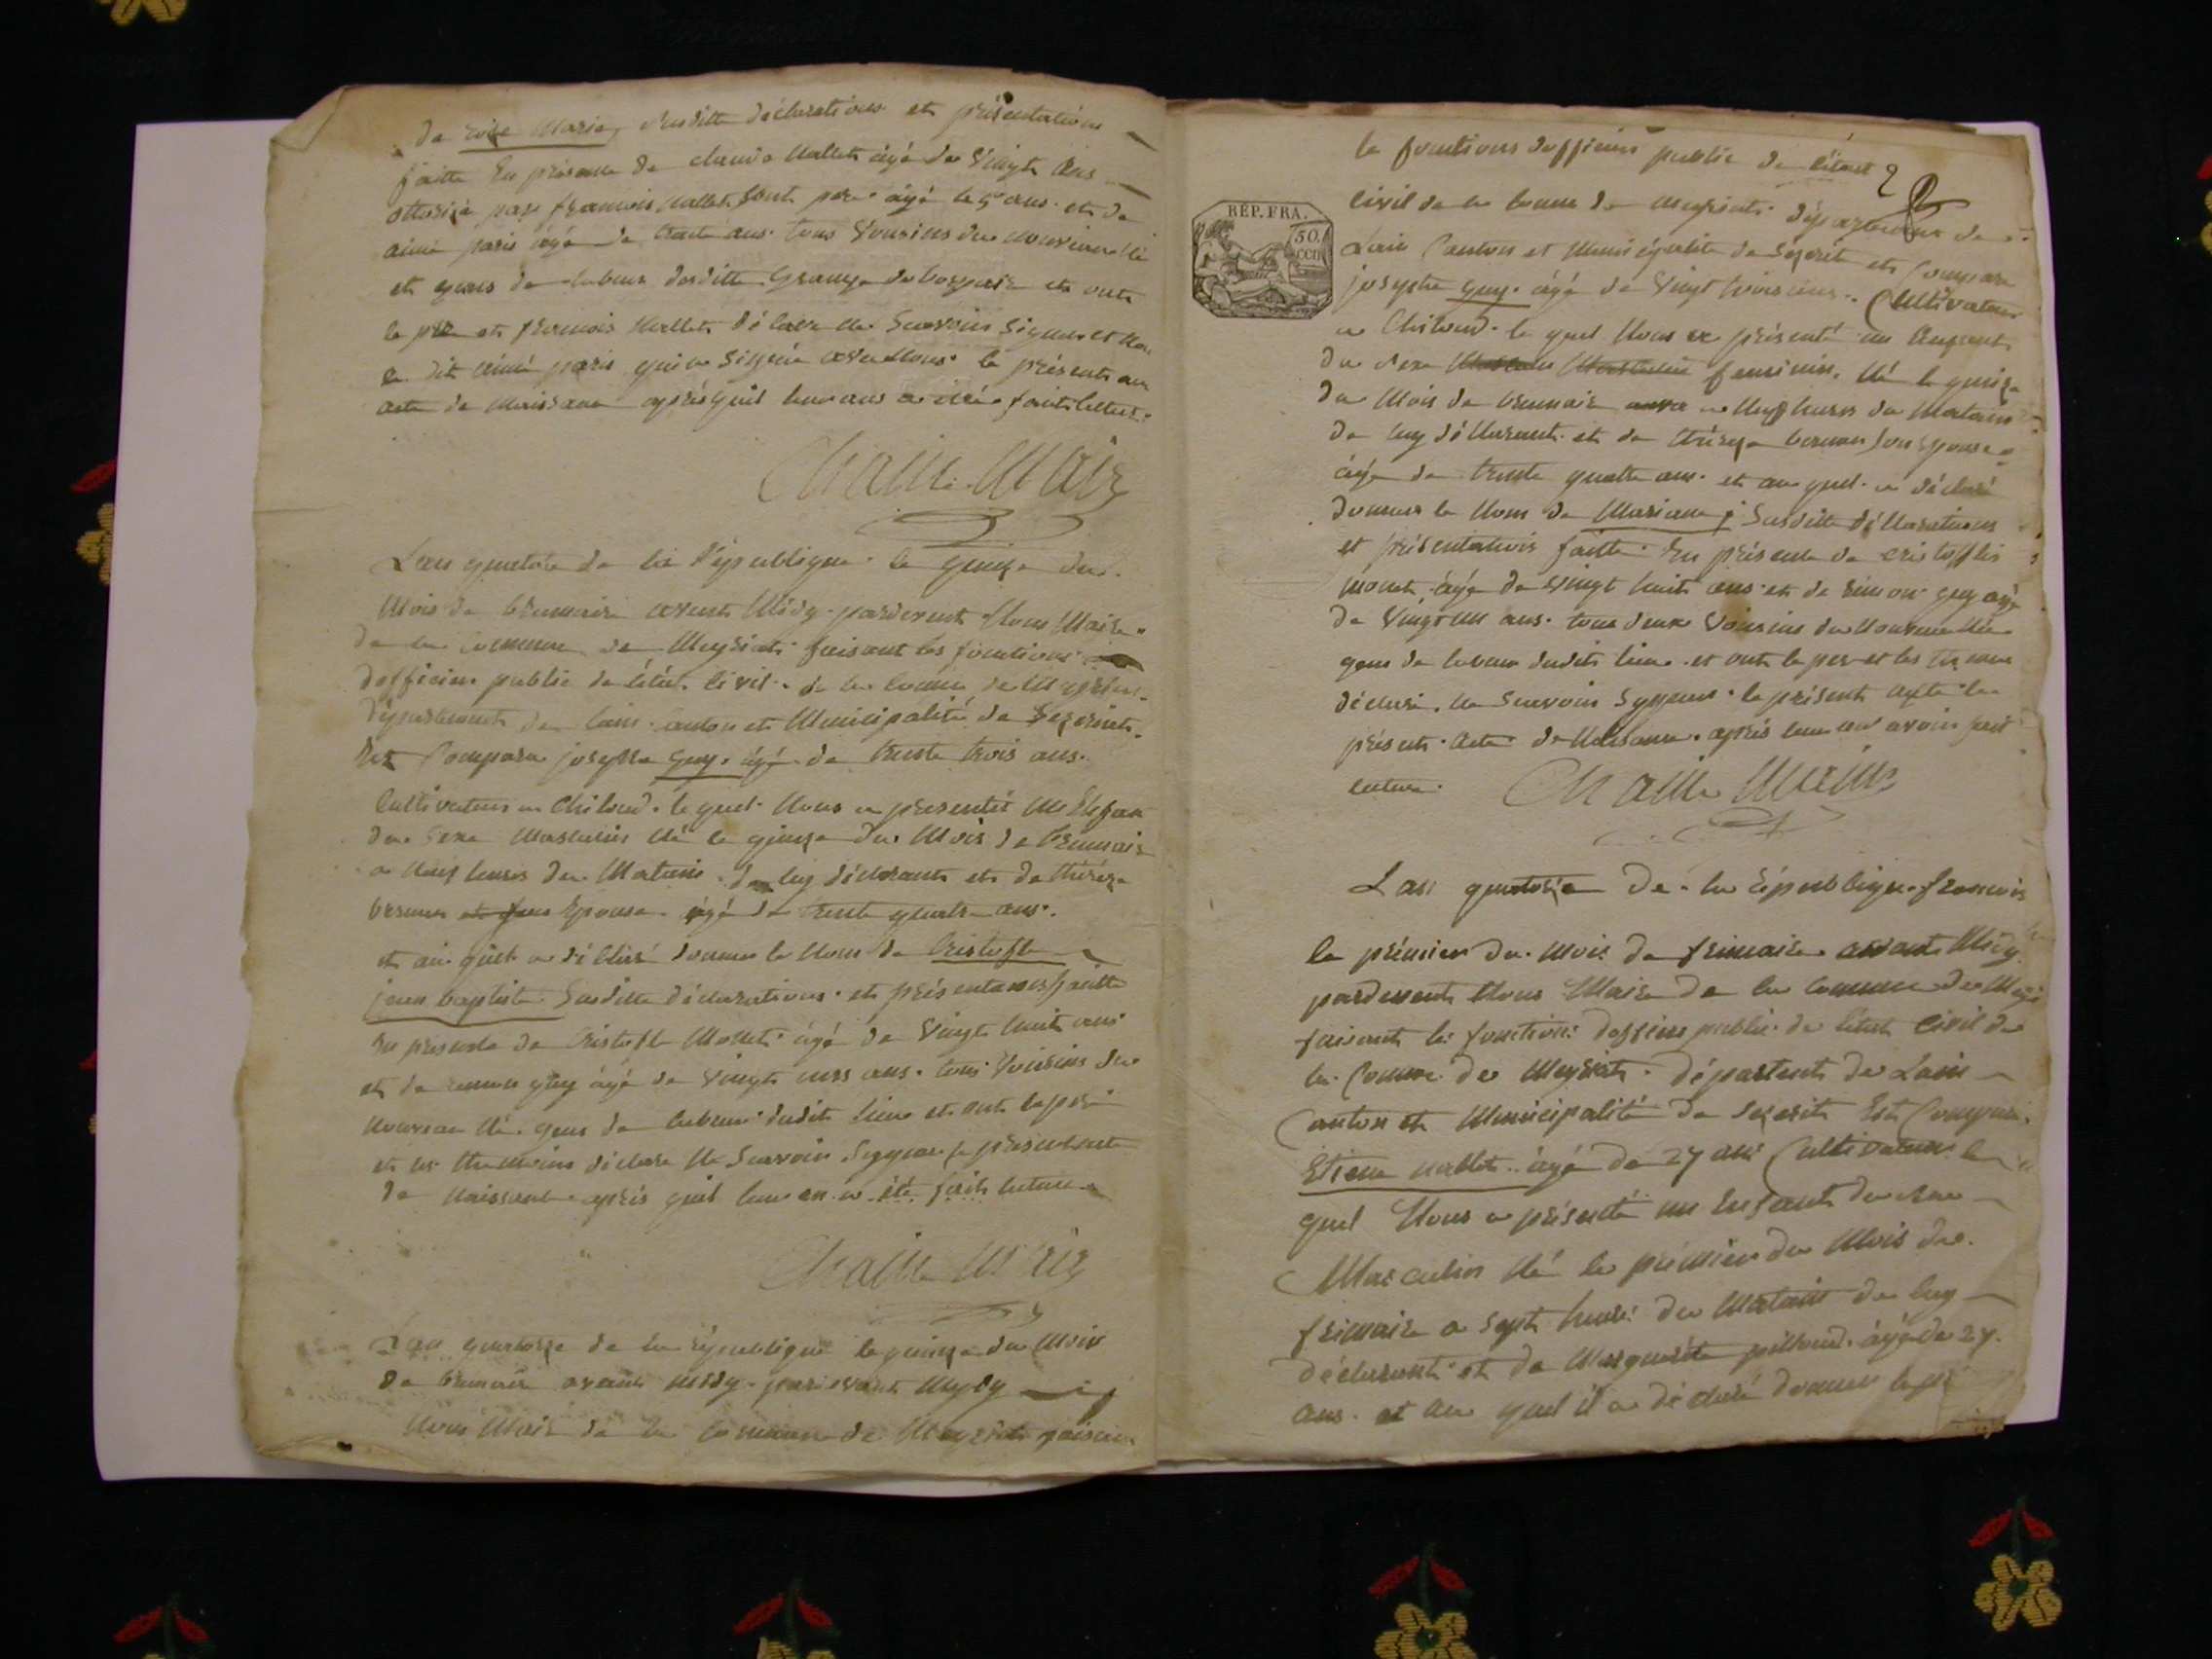 de rose Marie, susditte déclarations et présentations
faitte En présence de claude Mallet agé de Vingts Ans
ottorizé par françois Mallet sont pere agé de 5 ans et de
aimé paris agé de trante ans tous Vousins du nouveau né
et gens de labeur desditte Grange et onts
le pere et francois Mallet déclare ne Scavoirs Signer et
le dit aimé paris qui a Signée avec Nous le présents
acte de Naissance aprés quil leur ans a été faits letture
Chaine Maire
Lan quatorze de la République le quinze du
Mois de brumaire avent Midy pardevent Nous Maire
de la commune de Meyriat faisant les fonctions
dofficier public de létat Civil de la Comune de Meyriat
départements de lain canton et Municipalité de Sezeriats
Est Compara josephe Guy agé de trente trois ans
Cultivateur a Chiloud le quel Nous a presentét un Enfan
du Sexe Masculin Né le quinze du Mois de brumaire
a Neuf heures du Matains de luy déclarants et de thérèze
bernar et son Epouse agé de trente quatre ans
et au quel a déclaré donner le Nom de Cristofle
jean baptiste Susditte déclarations et présentations faitte
En presence de Cristofle Monet agé de Vingt huit ans
et de simon guy agé de Vingts uns ans tous Vousins du
nouveau Né gens de labeur dudits lieu et onts le pere
et les themoins déclare Ne Scavoir Signer le présent acte
de Naissance aprés quil leur en a été faits lecture
Chaine Maire
Lan quatorze de la République le quinze du Mois
de brumaire avants midy pardevant Mydy
Nous Maire de la commune de Meyriats faisant
la fonctions dofficiers public de létat 2
REP. FRA.
50.
CEN
Civil de la Comune de Meyriats département de
Lain Canton et Municipalité de Sézérit et Compara
josephe Guy agé de Vingt trois ans Cultivateur
a Chiloud le quel Nous a présenté un Enfant
du Sexe Masculin Masculin feminin Né le quinze
du Mois de brumaire a Neuf heures du Matains
de luy déclarant et de thérèze bernar son épouse
agé de trente quatre ans et au quel a déclaré
donner le Nom de Mariane Susditte déclarations
et présentations faitte En présence de cristoffles
Monet agé de Vingt huits ans et de simon guy agé
de Vingt un ans tous deux Voisins du Nouveau Né
gens de labeur dudits lieu et onts le per et les
déclaré Ne Scavoirs Sygner le présents acte
présents acte de Naissance aprés leur en avoir fait
lecture
Chaine Maire
Lan quatorze de la République francois
le prémier du Mois de frimaire avant Midy
pardevent Nous Maire de la Commune de
faisant les fonctions dofficier public de létat Civil de
la Comune de Meyriat départents de Lain
Canton et Municipalité de Sezerits Est Compara
Etiene mallet agé de 27 ans Cultivateur le
quel Nous a présenté un Enfants du sexe
Masculin Né le prémier du Mois de
frimaire a sept heures du Matains de luy
déclarant et de Marguerite pilloud agé de 27
ans et au quel il a déclaré donner